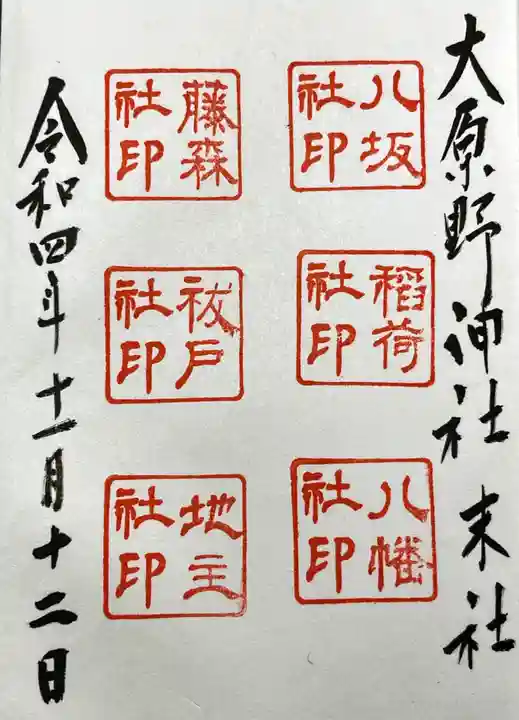 大原野神社 末社
八坂
社印
稻荷
社印
八幡
社印
藤森
社印
祓戸
社印
地主
社印
令和四年十一月十二日